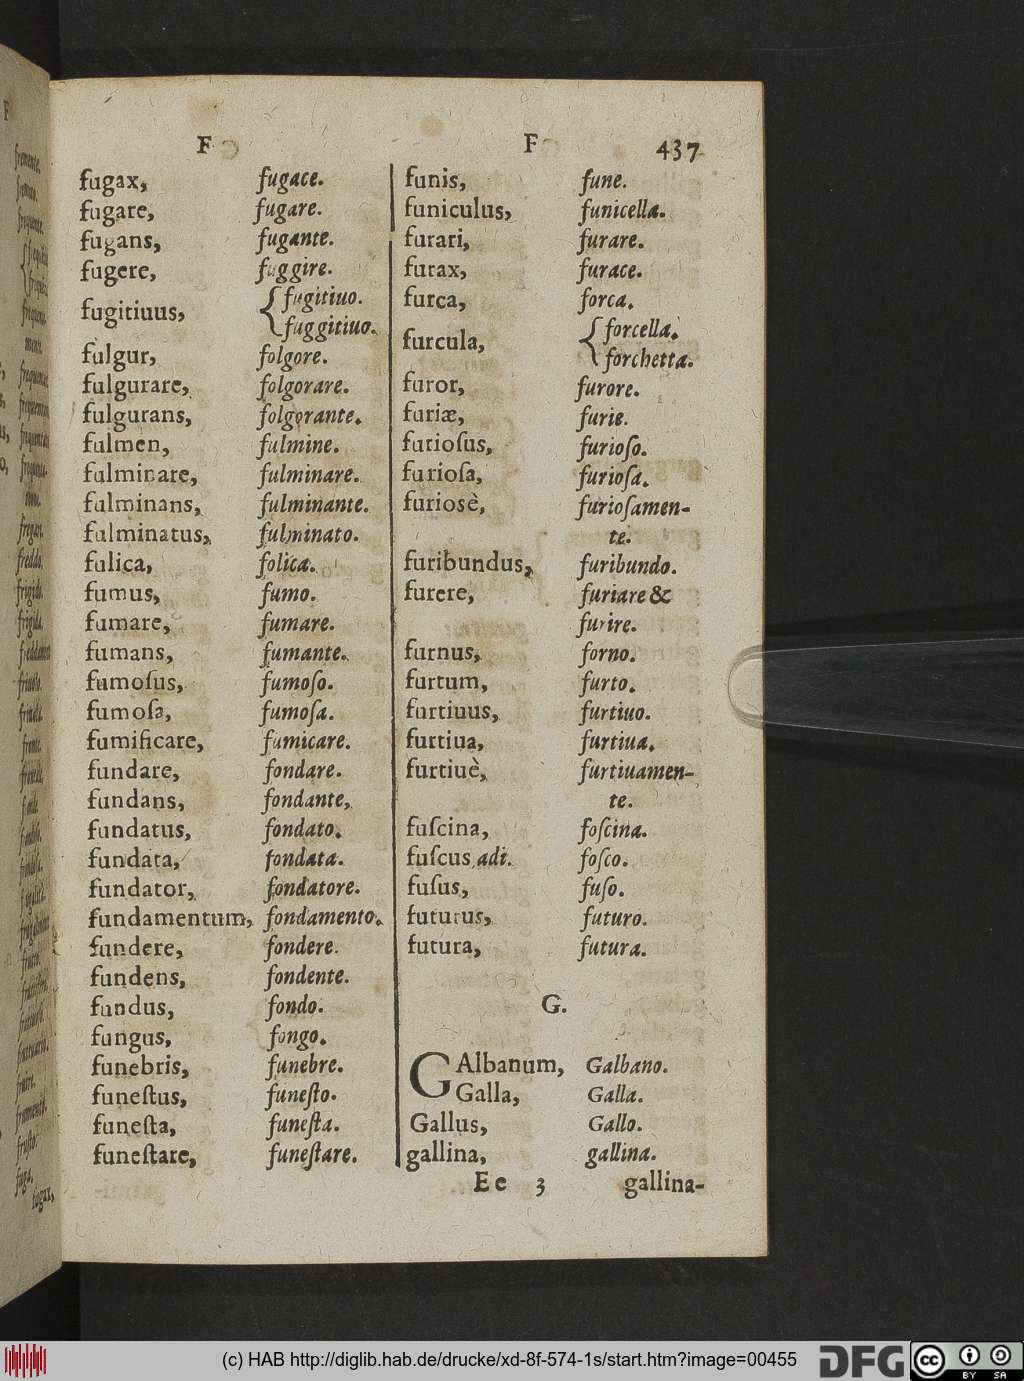 F F 437
fugax, fugace.
fugare, fugare.
fugans, fugante.
fugere, fuggire.
fugitiuus, { fugitiuo.
fuggitiuo.
fulgur, folgore.
fulgurare, folgorare.
fulgurans, folgorante.
fulmen, fulmine.
fulminare, fulminare.
fulminans, fulminante.
fulminatus, fulminato.
fulica, folica.
fumus, fumo.
fumare, fumare.
fumans, fumante.
fumosus, fumoſo.
fumoſa, fumoſa.
fumificare, fumicare.
fundare, fondare.
fundans, fondante,
fundatus, fondato.
fundata, fondata.
fundator, fondatore.
fundamentum, fondamento.
fundere, fondere.
fundens, fondente.
fundus, fondo.
fungus, fongo.
funebris, funebre.
funeſtus, funeſto.
funeſta, funeſta.
funeſtare, funeſtare.
funis, fune.
funiculus, funicella.
furari, furare.
furax, furace.
furca, forca.
furcula, { forcella.
forchetta.
furor, furore.
furiæ, furie.
furioſus, furioſo.
furioſa, furioſa.
furiosè, furioſamen-
te.
furibundus, furibundo.
furere, furiare &
furire.
furnus, forno.
furtum, furto.
furtiuus, furtiuo.
furtiua, furtiua.
furtiuè, furtiuamen-
te.
fuſcina, foſcina.
fuſcus adi. foſco.
fuſus, fuſo.
futurus, futuro.
futura, futura.
G.
GAlbanum, Galbano.
Galla, Galla.
Gallus, Gallo.
gallina, gallina.
Ee 3 gallina-
(c) HAB http://diglib.hab.de/drucke/xd-8f-574-1s/start.htm?image=00455
DFG
cc BY SA